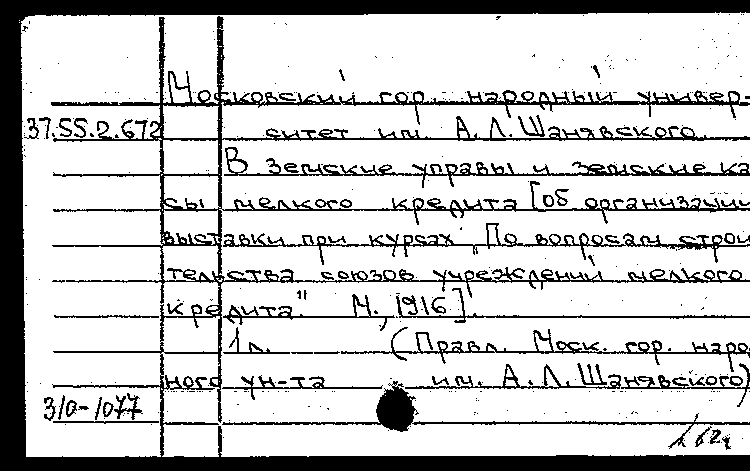 Московский гор. народный универ-
37.55.2.672 ситет им. А.Л.Шанявского.
В земские управы и земские кас-
сы мелкого кредита [об организации
выставки при курсах „По вопросам строи
тельства союзов учреждений мелкого
кредита." М., 1916].
1 л. (Правл. Моск. гор. наро
ного ун-та им. А.Л.Шанявского)
310-1077